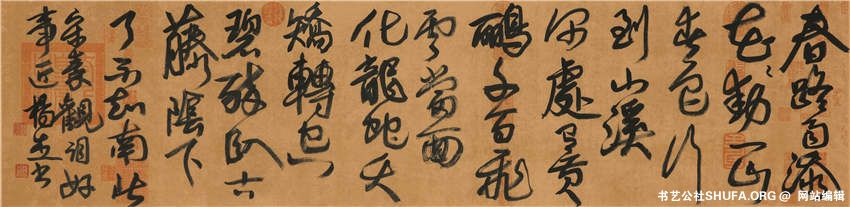 春路雨添
花〻動一山
春色行
到小溪
深處有黃
鸝千百飛
雲當面
化龍蛇夭
矯轉空
碧醉臥古
藤陰下
了不知南北
宋秦觀詞好
事近楊書
书艺公社SHUFA.ORG @ 网站编辑